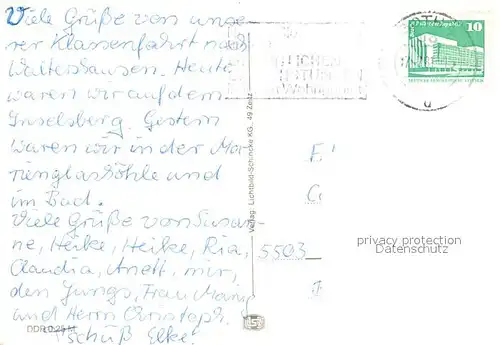 Viele Grüße von unse-
rer Klassenfahrt nach
Waltershausen. Heute
waren wir auf dem
Inselsberg. Gestern
waren wir in der Ma-
rienglashöhle und
im Bad.
Viele Grüße von Susan-
ne, Heike, Heike, Ria,
Claudia, Anett, mir,
den Jungs, Frau
und Herrn Christoph.
Tschüß Elke!
DDR 0,25 M
Verlag: Lichtbild-Schincke KG, 49 Zeitz
10
5503
privacy protection
Datenschutz